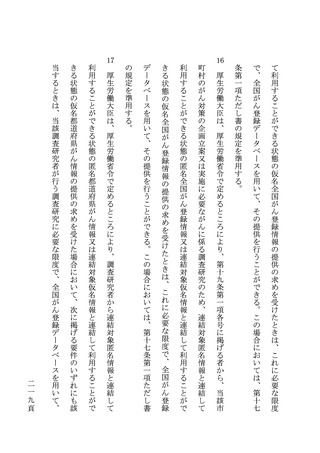 て利用することができる状態の仮名全国がん登録情報の提供の求めを受けたときは、これに必要な限度
で、全国がん登録データベースを用いて、その提供を行うことができる。この場合においては、第十七
条第一項ただし書の規定を準用する。
16 厚生労働大臣は、厚生労働省令で定めるところにより、第十九条第一項各号に掲げる者から、当該市
町村のがん対策の企画立案又は実施に必要ながんに係る調査研究のため、連結対象匿名情報と連結して
利用することができる状態の匿名全国がん登録情報又は連結対象仮名情報と連結して利用することがで
きる状態の仮名全国がん登録情報の提供の求めを受けたときは、これに必要な限度で、全国がん登録
データベースを用いて、その提供を行うことができる。この場合においては、第十七条第一項ただし書
の規定を準用する。
17 厚生労働大臣は、厚生労働省令で定めるところにより、調査研究者から連結対象匿名情報と連結して
利用することができる状態の匿名都道府県がん情報又は連結対象仮名情報と連結して利用することがで
きる状態の仮名都道府県がん情報の提供の求めを受けた場合において、次に掲げる要件のいずれにも該
当するときは、当該調査研究者が行う調査研究に必要な限度で、全国がん登録データベースを用いて、
二一九頁